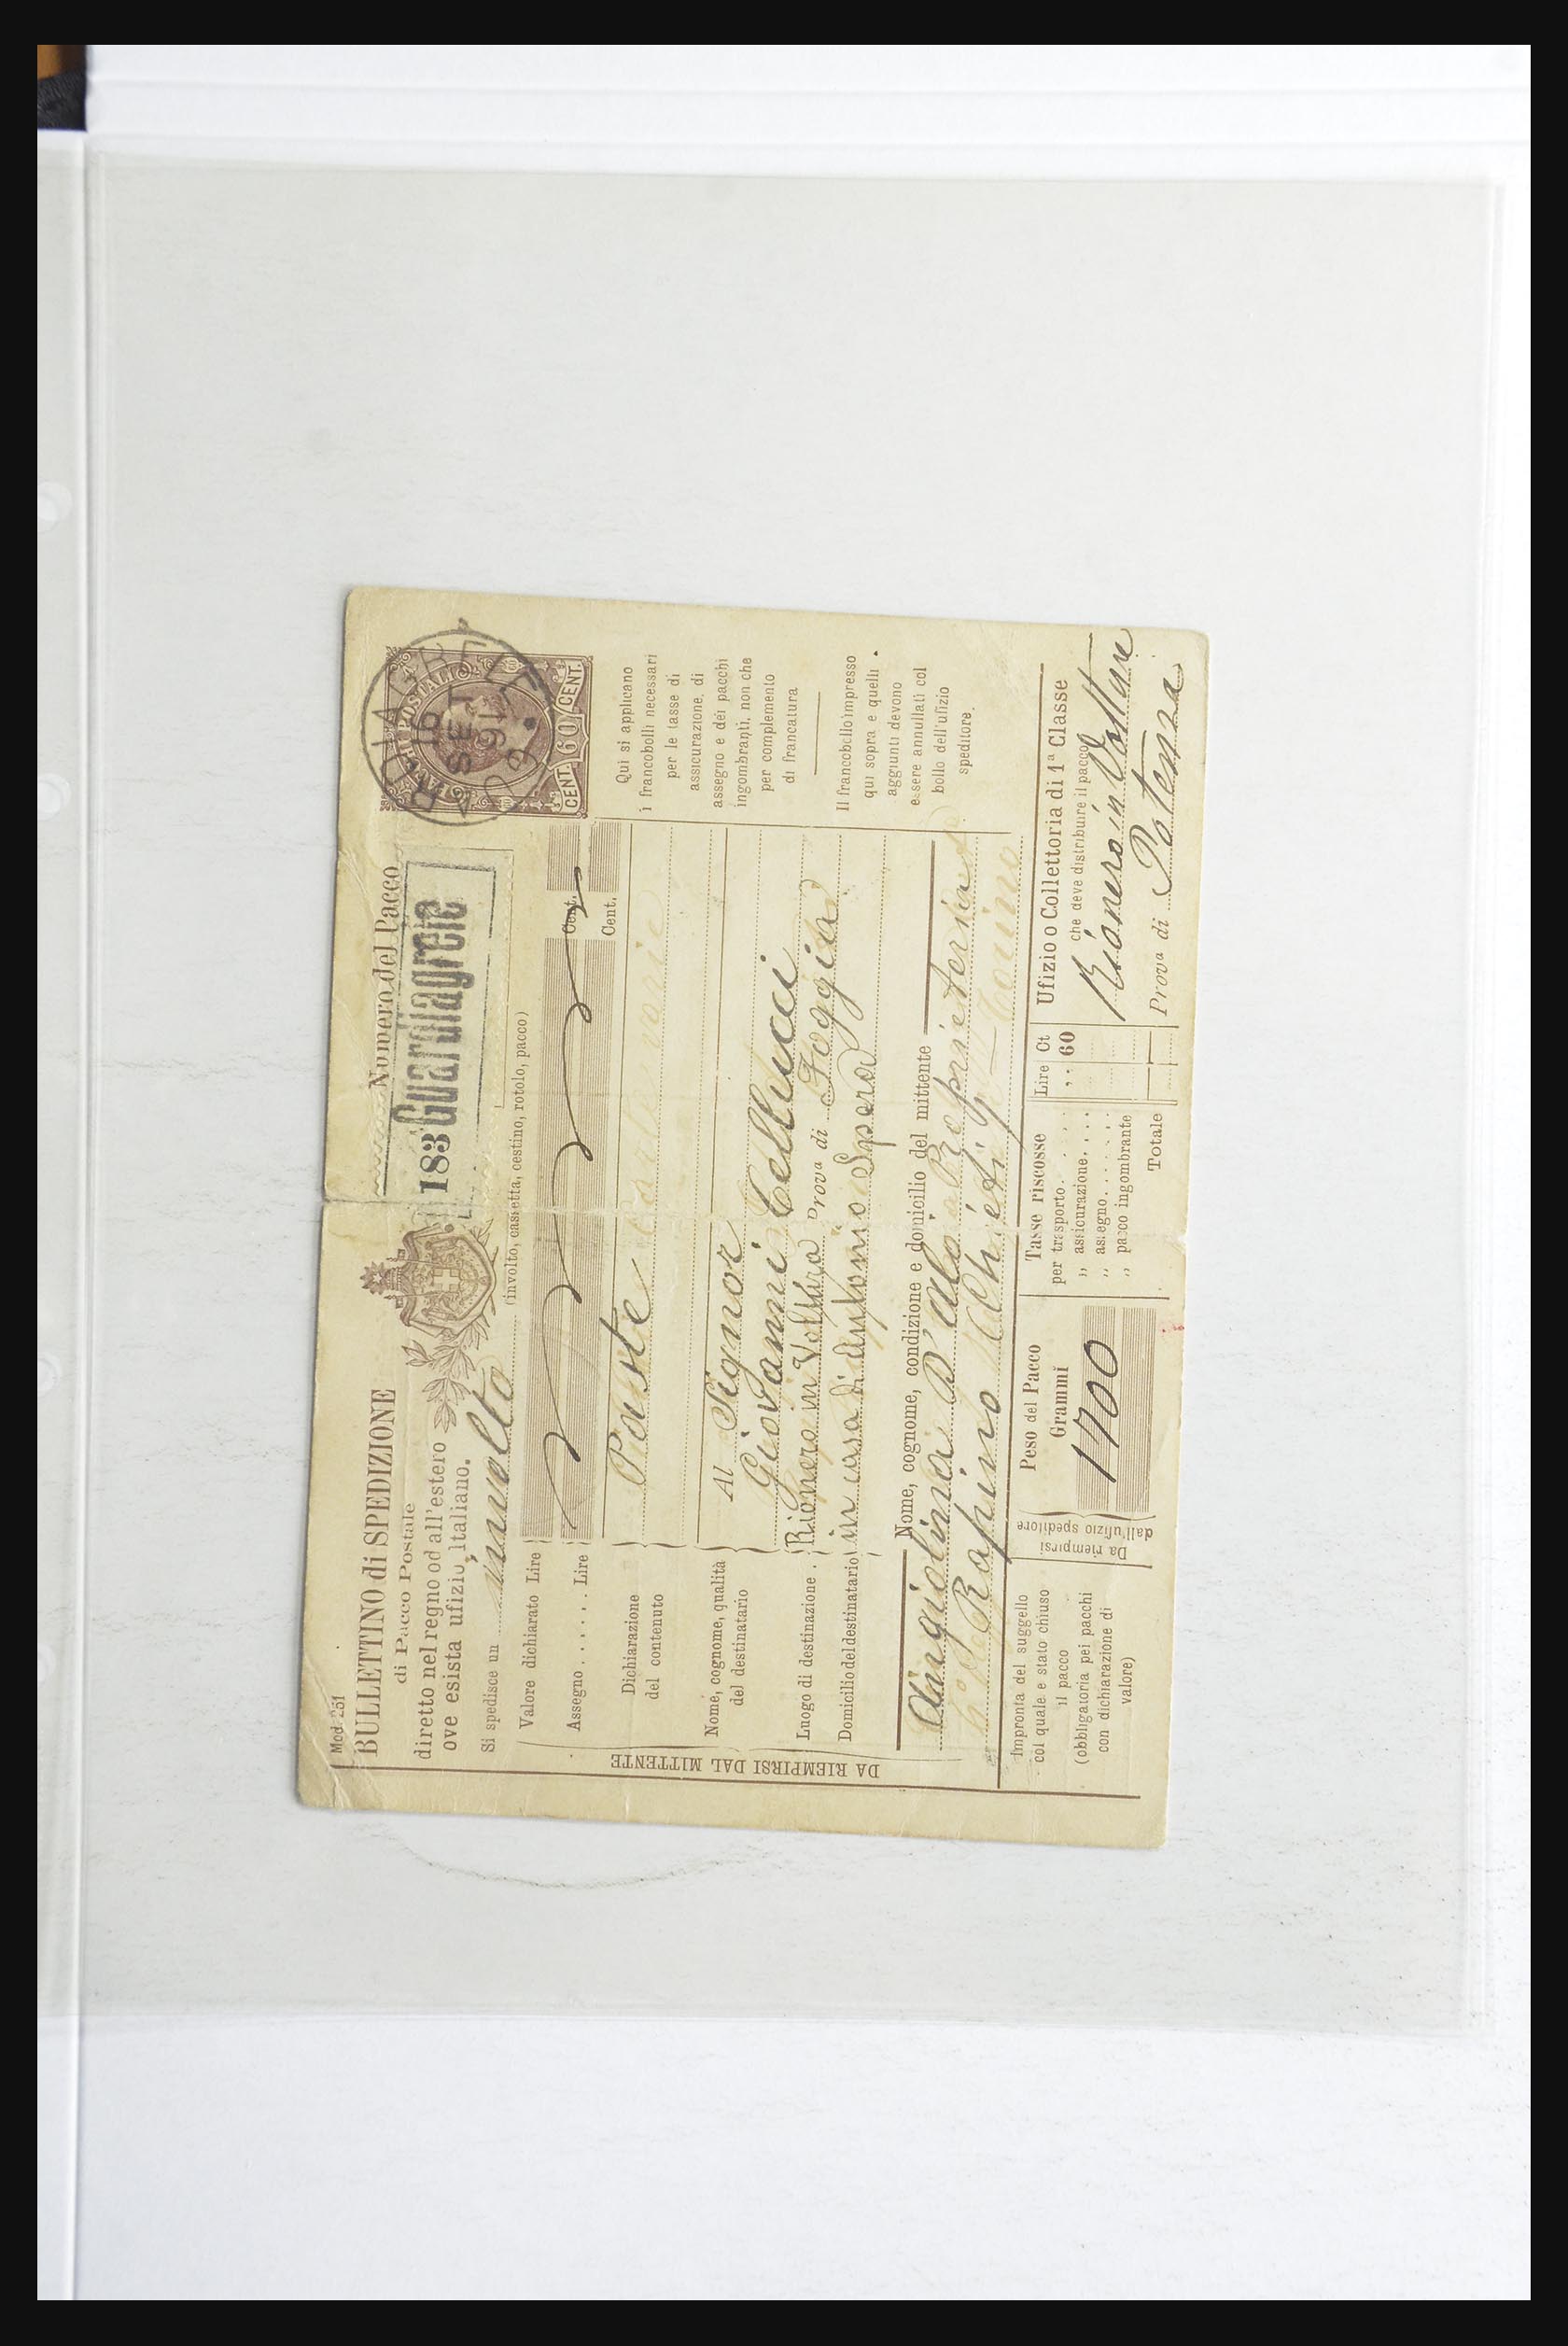 Mod. 251
BULLETTINO di SPEDIZIONE
di Pacco Postale
diretto nel regno od all'estero
ove esista ufizio Italiano.
Numero del Pacco
183 Guardiagrele
PACCHI POSTALI
CENT. 60 CENT.
GUARDIAGRELE
16
SET
91
Si spedisce un involto (involto, cassetta, cestino, rotolo, pacco)
Valore dichiarato Lire Cent.
Assegno . . . . . . Lire Cent.
Dichiarazione
del contenuto
Paste
Nome, cognome, qualità
del destinatario
Al Signor
Giovanni Cellucci
Luogo di destinazione . Rionero in Volture Prova di Foggia
Domicilio del destinatario in casa di Antonio Spera
DA RIEMPIRSI DAL MITTENTE
Nome, cognome, condizione e domicilio del mittente
Angiolina D'Aloi Proprietaria
Rapino Chieti
Qui si applicano
i francobolli necessari
per le tasse di
assicurazione, di
assegno e dei pacchi
ingombranti, non che
per complemento
di francatura
Il francobollo impresso
qui sopra e quelli
aggiunti devono
essere annullati col
bollo dell'ufizio
speditore.
Impronta del suggello
col quale è stato chiuso
il pacco
(obbligatoria pei pacchi
con dichiarazione di
valore)
Da riempirsi
dall'ufizio speditore
Peso del Pacco
Grammi
1700
Tasse riscosse Lire Ct
per trasporto. . . . 60
,, assicurazione. . . .
,, assegno. . . . . . .
,, pacco ingombrante
Totale
Ufizio o Collettoria di 1ª Classe
che deve distribuire il pacco
Rionero in Volture
Prova di Potenza